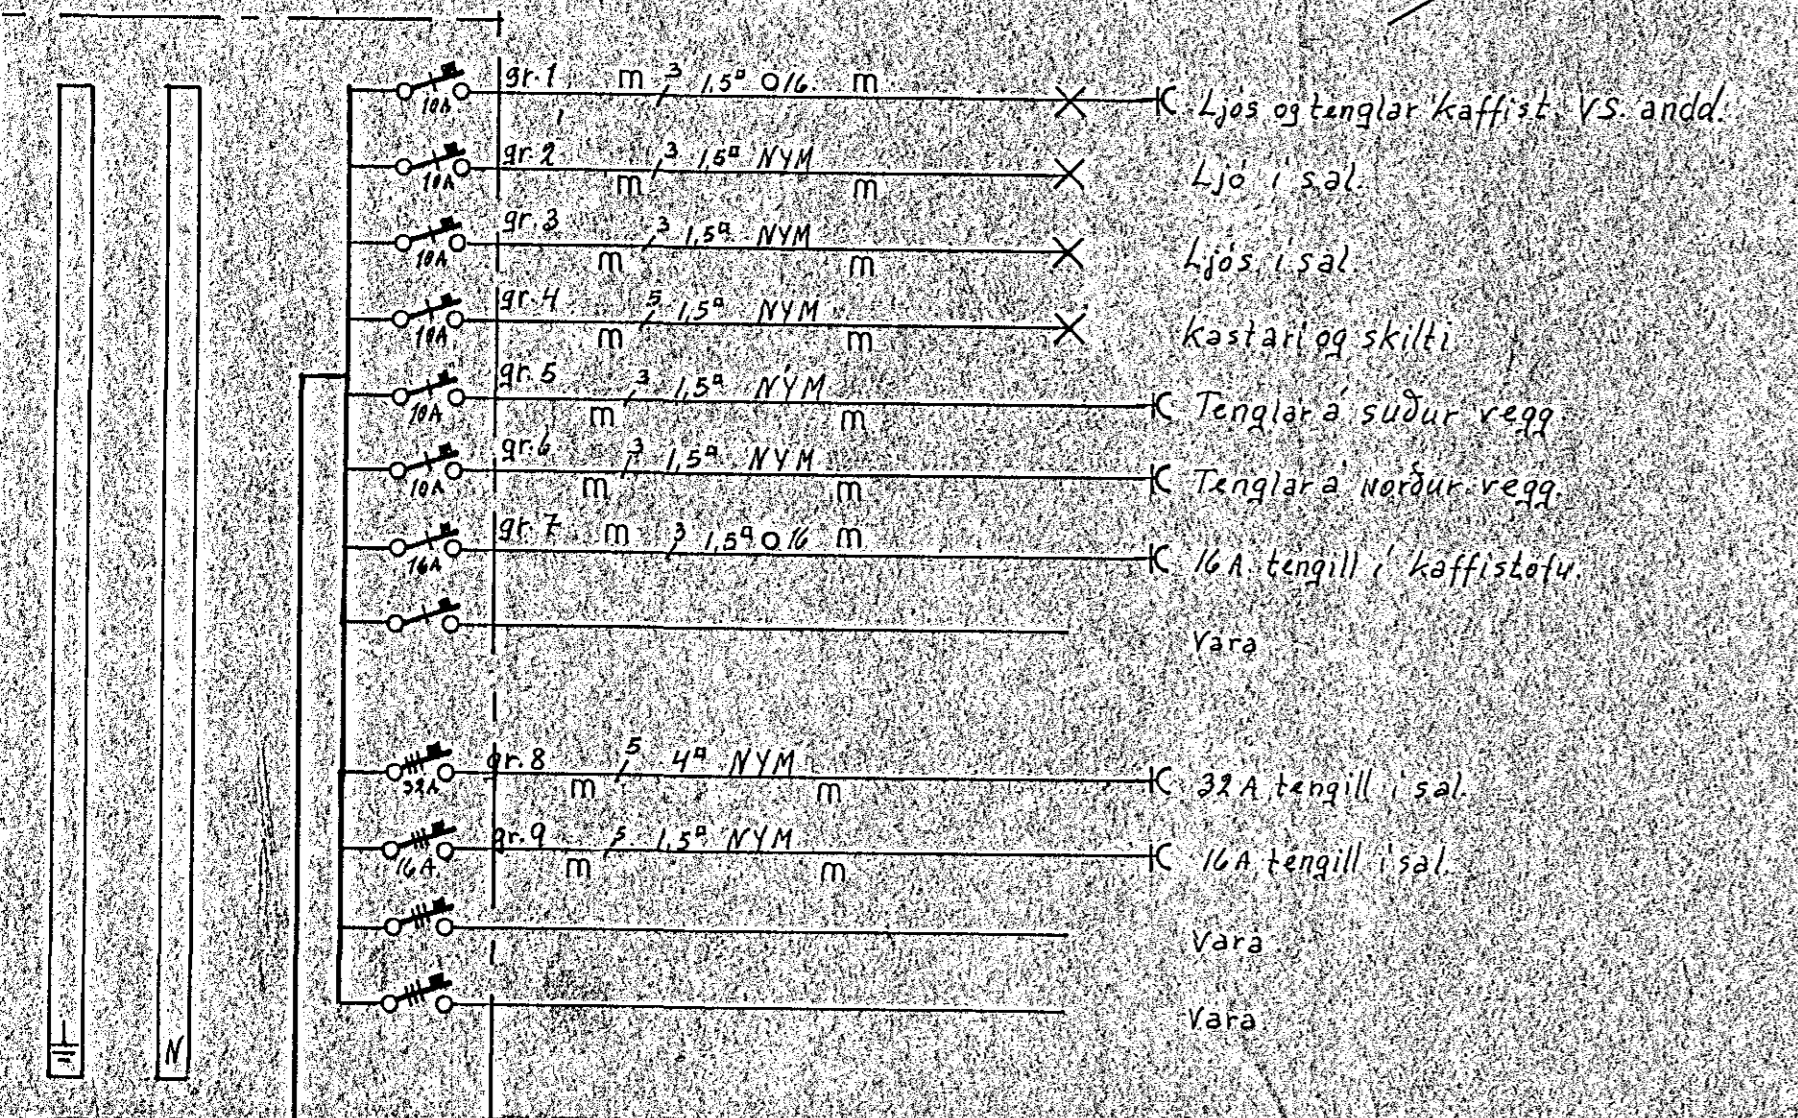 gr.1 m 3 1,5▫ O16. m Ljós og tenglar kaffist. VS. andd.
10A
gr.2 3 1,5▫ NYM Ljó í sal.
10A m m
gr.3 3 1,5▫ NYM Ljós í sal.
10A m m
gr.4 5 1,5▫ NYM Kastari og skilti
10A m m
gr.5 3 1,5▫ NYM Tenglar á suður vegg
10A m m
gr.6 3 1,5▫ NYM Tenglar á norður vegg.
10A m m
gr.7 m 3 1,5▫ O16 m 16A. tengill í kaffistofu.
16A
Vara
gr.8 5 4▫ NYM 32A tengill í sal.
32A m m
gr.9 5 1,5▫ NYM 16A tengill í sal.
16A. m m
Vara
Vara
N